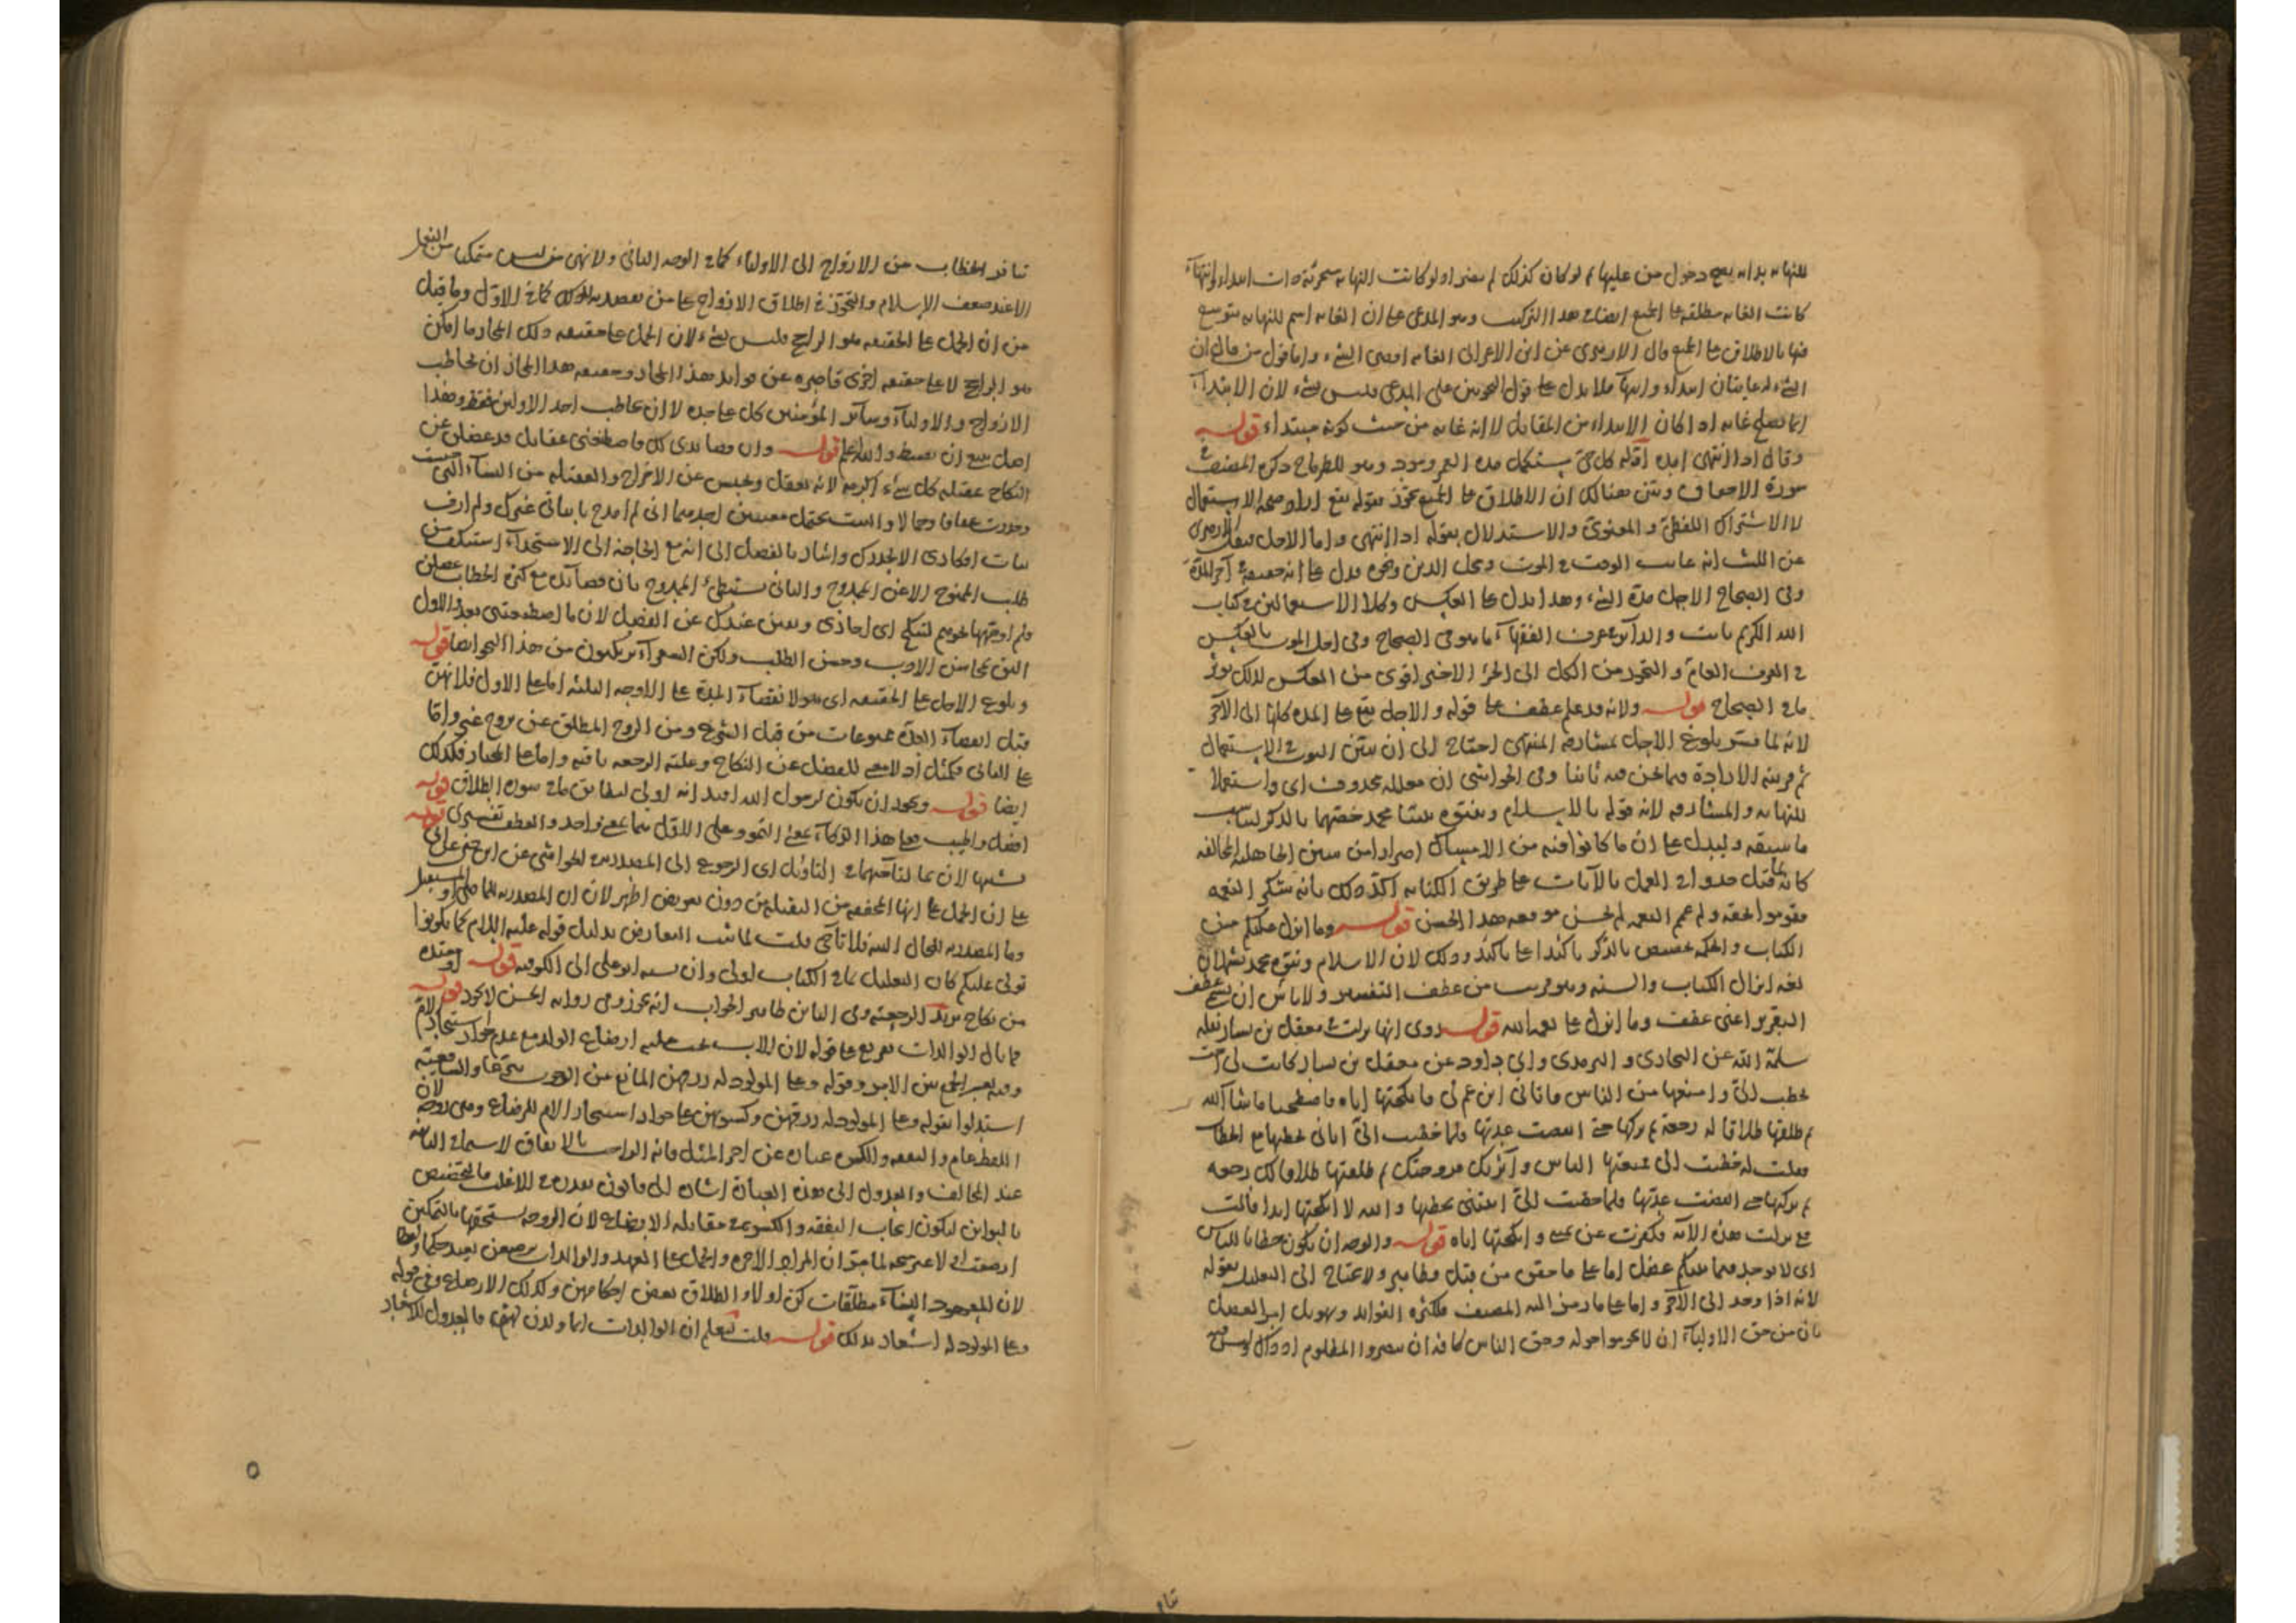 للنهاية بدليل انه يصح دخول من عليها ثم لو كان كذلك لم يضر اذ لو كانت النهاية متجزئة ذات ابتداء وانتهاء
كانت الغاية مطلقة على الجميع ايضا في هذا التركيب وهو المدعى على ان الغاية اسم للنهاية يتوسع
فيها بالاطلاق على الجميع قال الازهري عن ابن الاعرابي الغاية اقصى الشيء واما قول من قال ان
الشيء له غايتان ابتداء وانتهاء فلا يدل على قول النحويين على المدعى فليس بشيء لان الابتداء
انما يصلح غاية اذا كان الابتداء من المقابل لا انه غاية من حيث كونه مبتداء قوله
وقال اذا انتهى امده اوله كل حي مستكمل مدة العمر ومود وهو للطرماح ذكره المصنف في
سورة الاحقاف وتبين هنالك ان الاطلاق على الجميع تجوز بقوله يقع اراد صحة الاستعمال
لا الاشتراك اللفظي و المعنوي والاستدلال بقوله اذا انتهى واما الاجل فنقل الازهري
عن الليث انه غاية الوقت في الموت ومحل الدين ونحوه فدل على انه حقيقة في آخر المدة
وفي الصحاح الاجل مدة الشيء وهذا يدل على العكس وكلا الاستعمالين في كتاب
الله الكريم ثابت و الدائر في عرف الفقهاء ما هو في الصحاح وفي اجل الموت بالعكس
في العرف العام و التجوز من الكل الى الجزء الاخير اقوى من العكس لذلك يؤثر
ما في الصحاح قوله ولانه قد علم عطف على قوله و الاجل يقع على المدة كلها الى الآخر
لانه لما فسر بلوغ الاجل بمشارفة المنتهى احتاج الى ان يبين الثبوت في الاستعمال
ثم قرينة الارادة فيما نحن فيه ثانيا وفي الحواشي ان معلله محذوف اي واستعمالا
للنهاية و المشارفة لانه قوله بالاسلام وبنبوة محمد خصهما بالذكر ليناسب
ما سبقه وليدل على ان ما كانوا فيه من الامساك اضرارا من سنن الجاهلية المخالفة
كانه قيل جدوا في العمل بالآيات على طريق الكناية اكد ذلك بانه شكر النعمة
فقوموا بحقه ولو عم النعمة لم يحسن موقعه هذا الحسن قوله وما انزل عليكم من
الكتاب و الحكمة تخصيص بالذكر تأكيدا على تأكيد وذلك لان الاسلام ونبوة محمد يشملان
نعمة انزال الكتاب و السنة وهو قريب من عطف التفسير ولا بأس ان يسمى عطف
التقرير اعني عطف وما انزل على نعمة الله قوله روي انها نزلت في معقل بن يسار نقله
سلمه الله عن البخاري و الترمذي وابي داود عن معقل بن يسار كانت لي اخت
تخطب الي وامنعها من الناس فاتاني ابن عم لي فانكحتها اياه فاصطحبا ما شاء الله
ثم طلقها طلاقا له رجعة ثم تركها حتى انقضت عدتها ولما خطبت الي اتاني يخطبها مع الخطاب
فقلت له خطبت الي فمنعتها الناس وآثرتك فزوجتك ثم طلقتها طلاقا لك رجعة
ثم تركتها حتى انقضت عدتها فلما خطبت الي اتيتني تخطبها والله لا انكحتها ابدا قالت
ففي نزلت هذه الآية فكفرت عن يميني وانكحتها اياه قوله والوجه ان يكون خطابا للناس
اي لا يوجد فيما بينكم عضل اما على ما حقق من قبل فظاهر ولا يحتاج الى التعليل بقوله
لانه اذا وجد الى الآخر واما على ما رمز اليه المصنف فلكثرة الفوائد وتهويل امر العضل
بان من حق الاولياء ان لا يحوموا حوله وحق الناس كافة ان ينصروا المظلوم اذ ذاك وليس فيه
تنافر الخطاب من الازواج الى الاولياء كما في الوجه الثاني ولا نهي من ليس متمكنا من الفعل
الا عند ضعف الاسلام والتجوز في اطلاق الازواج على من يقصد بذلك كما في الاول وما قيل
من ان الحمل على الحقيقة هو الراجح فليس بشيء لان الحمل على حقيقة ذلك المجاز ما امكن
هو الراجح لا على حقيقة اخرى قاصرة عن فوائد هذا المجاز وحقيقة هذا المجاز ان يخاطب
الازواج والاولياء وسائر المؤمنين كل على حدة لا ان يخاطب احد الاولين فقط وهذا
اصل ينبغي ان يضبط والله اعلم قوله وان قصائدي لك فاصطنعني عقائل قد عضلن عن
النكاح عقيلة كل شيء اكرمه لانه يعقل ويحبس عن الاخراج والعقيلة من النساء التي
وخدرت عفافا وجمالا والبيت يحتمل معنيين احدهما اني لم امدح بابياتي غيرك ولم ازف
بنات افكاري الا لجدك واشار بالفصل الى انه مع الحاجة الى الاستجداء استنكف من
طلب الممنوح الا عن الممدوح والثاني يستبطئ الممدوح بان قصائدي مع كثرة الخطاب عضلن
ولم اوجهها نحوهم لتنكح اي احاذى وبقين عندك عن الفصيل لان ما اصطنعتني بعد والاول
ابين محاسن الادب وحسن الطلب ولكن الشعراء يرتكبون من هذا النحو ايضا قوله
وبلوغ الاجل على الحقيقة اي هو لانقضاء المدة على الاوجه الثلثة اما على الاول فلانهن
قبل انقضاء العدة ممنوعات من قبل الشرع ومن الزوج المطلق عن تزوج غيره واما
على الثاني فكمثل اذ لا معنى للعضل عن النكاح وعلقة الرجعة باقية واما على المختار فكذلك
ايضا قوله ويجوز ان يكون لرسول الله افيد انه اولى ليطابق ما في سورة الطلاق قوله
افضل واطيب فعلى هذا الزكاء بمعنى النمو وعلى الاول هما بمعنى واحد والعطف تفسيري قوله
تشبيها لان بما لتآخيهما في التأويل اي الرجوع الى المصدر في الحواشي عن ابن جني عن ابي علي
على ان الحمل على انها المخففة من الثقيلة من دون تعويض اظهر لان ان المصدرية للماضي او المستقبل
وما المصدرية للحال البتة فلا تآخي قلت لما ثبت التعارض بدليل قوله عليه السلام كما تكونوا
تولى عليكم كان التعليل بما في الكتاب اولى وان نسبه ابو علي الى الكوفية قوله او معتدة
من نكاح يريد الرجعية وفي البائن ظاهر الجواب انه يجوز وفي رواية الحسن لا يجوز قوله
فما بال الوالدات تفريع على قوله لان الاب يجب عليه ارضاع الولد مع عدم جواز استئجار الام
وفيه يعسر الجمع بين الامر وقوله وعلى المولود له رزقهن المانع عن الوجوب شرعا والشافعية
استدلوا بقوله وعلى المولود له رزقهن وكسوتهن على جواز استئجار الام للرضاع وهي زوجة لان
اللفظ عام والنفقة والكسوة عبارة عن اجر المثل فانه الواجب بالاتفاق لا سيما في البائنة
عند المخالف والعدول الى هذه العبارة اشارة الى قانون تقدير في الاغلب فالتخصيص
بالبوائن ليكون ايجاب النفقة والكسوة في مقابلة الارضاع لان الزوجة تستحقها بالتمكين
ارضعت او لا غير متجه لما مر ان المراد الاجرة والحمل على العهد والوالدات يرضعن بعيد حكما ولفظا
لان المعهود النساء مطلقات كن اولا والطلاق بعض احكامهن وكذلك الارضاع وفي قوله
وعلى المولود له اشعار بذلك قوله قلت ليعلم ان الوالدات انما ولدن لهم فالعدول للاشعار